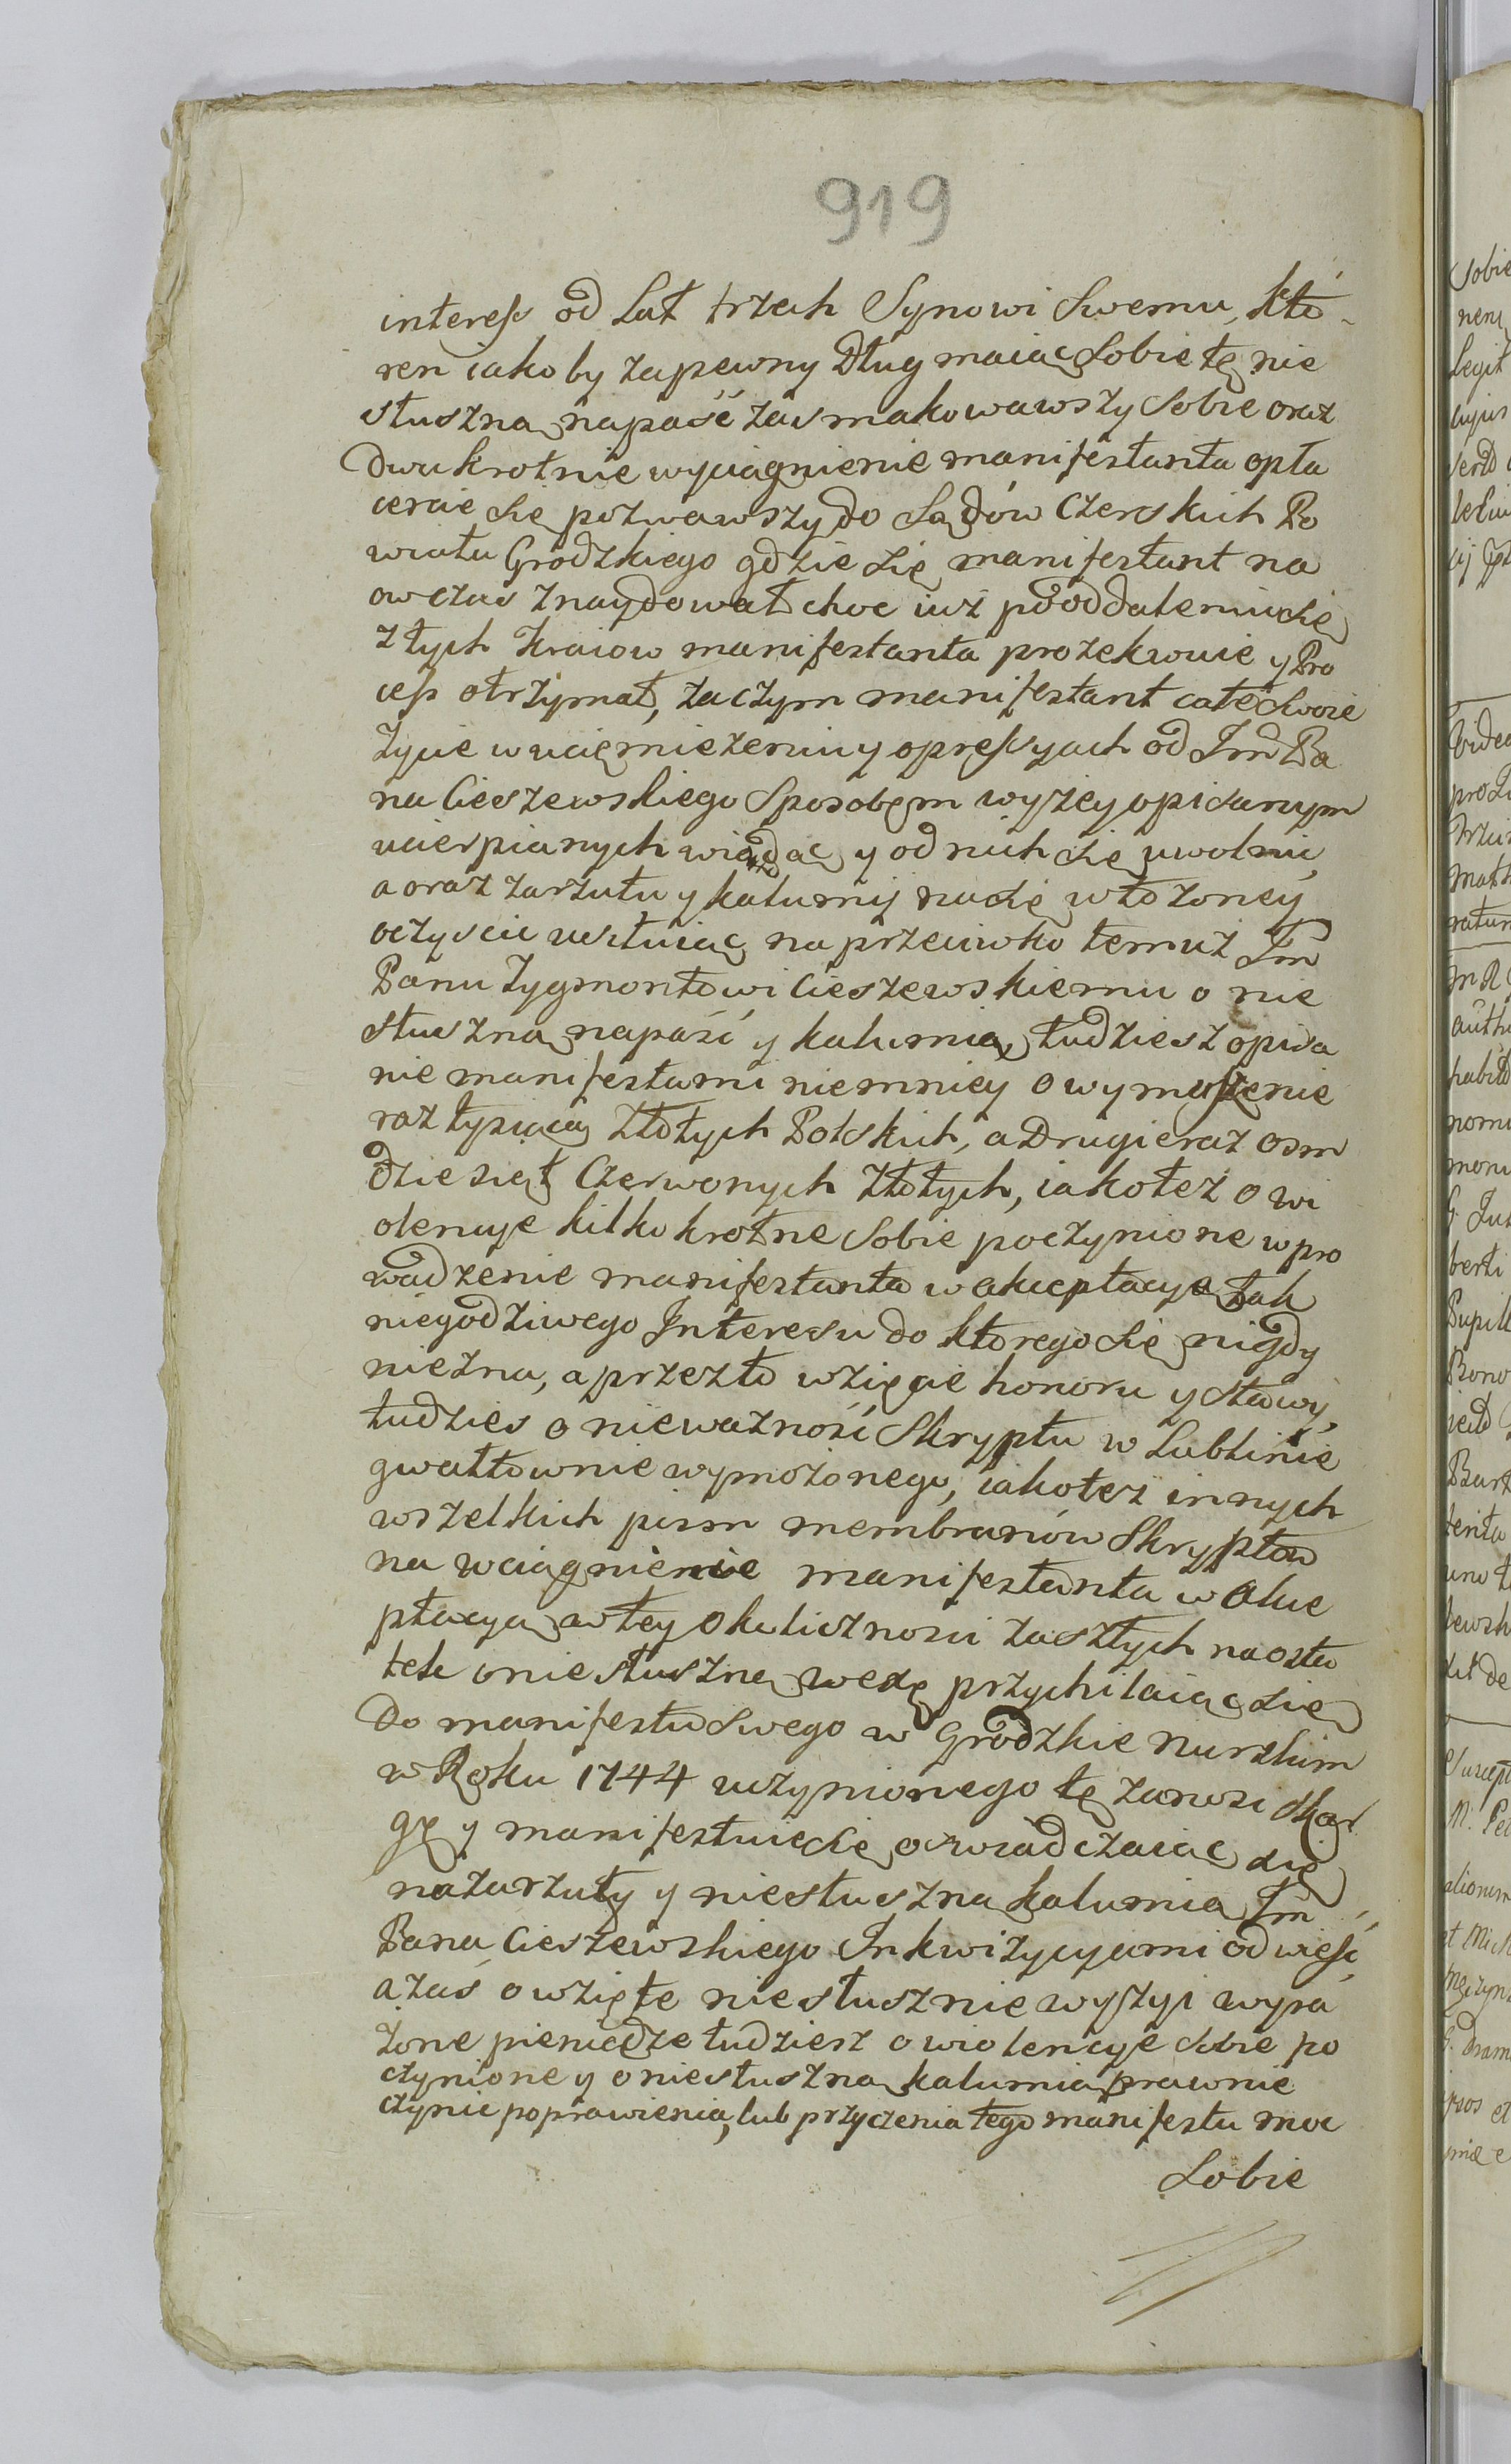 919
interess od Lat trzech Synowi Swemu, któ-
ren iakoby zapewny Dług maiąc Sobie tę nie
słuszną napaść zasmakowawszy Sobie oraz
Dwukrotnie wyciągnienie manifestanta opła
cenie się pozwawszy do Sądów Czerskich Po
wiatu Grodzkiego gdzie się manifestant na
owczas znaydował choc iuż po oddaleniu się
z tych Kraiow manifestanta prozekwuie y Pro
cess otrzymał, zaczym manifestant całe Swoie
życie w uciemiężeniu y opressyach od Jmć Pa
na Cieszewskiego Sposobem wyżey opisanym
ucierpianych widząc y od nich się uwolnić
a oraz zarzutu y kalumij na się włożoney
oczyscic usiłuiąc na przeciwko temuż Jm
Panu Zygmontowi Cieszewskiemu o nie
słuszną napaść y kalumią, tudziesz opisa
nie manifestami niemniey o wymuszenie
raz tysiąca Złotych Polskich, a Drugi eraz osm
dziesiąt Czerwonych Złotych, iakoteż o wi
olencye kilkokrotne Sobie poczynione wpro
wadzenie manifestanta w akceptacyę tak
niegodziwego Interesu do ktorego się nigdy
niezna, a przezto wzięcie honoru y sławy,
tudzies o nieważność Skryptu w Lublinie
gwałtownie wymożonego, iakotez innych
wszelkich pism membranów Skryptow
na wciągnienie manifestanta w akce
ptacyą w tey okoliczności zaszłych naosta
tek o niesłuszną wexę przychilaiąc się
Do manifestu Swego w Grodzkie Nurskim
w Roku 1744 uczynionego tę zanosi Skar
gę y manifestuie się oswiadczaiąc się
na zarzuty y niesłuszną kalumią Jm
Pana Cieszewskiego Inkwizycyami odwieść,
a zas o wzięte niesłusznie wyszyi wyra
żone pieniądze tudziesz o wiolencye Sobie po
czynione y o niesłuszną kalumią prawnie
czynic poprawienia, lub przyczenia tego manifestu moc
Sobie